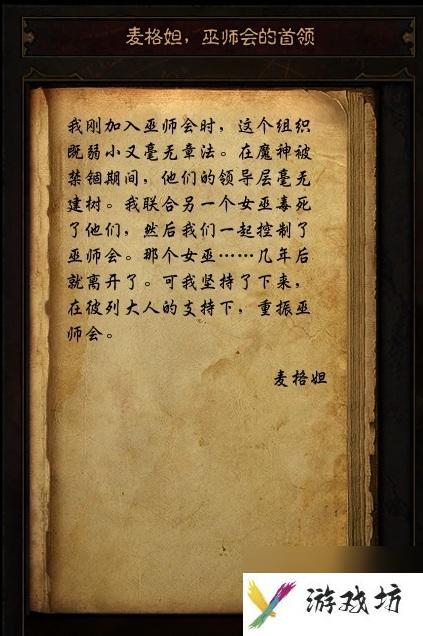 麦格妲，巫师会的首领
我刚加入巫师会时，这个组织
既弱小又毫无章法。在魔神被
禁锢期间，他们的领导层毫无
建树。我联合另一个女巫毒死
了他们，然后我们一起控制了
巫师会。那个女巫……几年后
就离开了。可我坚持了下来，
在彼列大人的支持下，重振巫
师会。
麦格妲
游戏坊